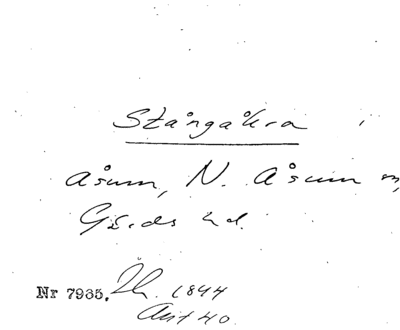 Stångåkra
Åsum, N. Åsum sn,
Gärds hd.
Nr 7935. 1844
Akt 40.